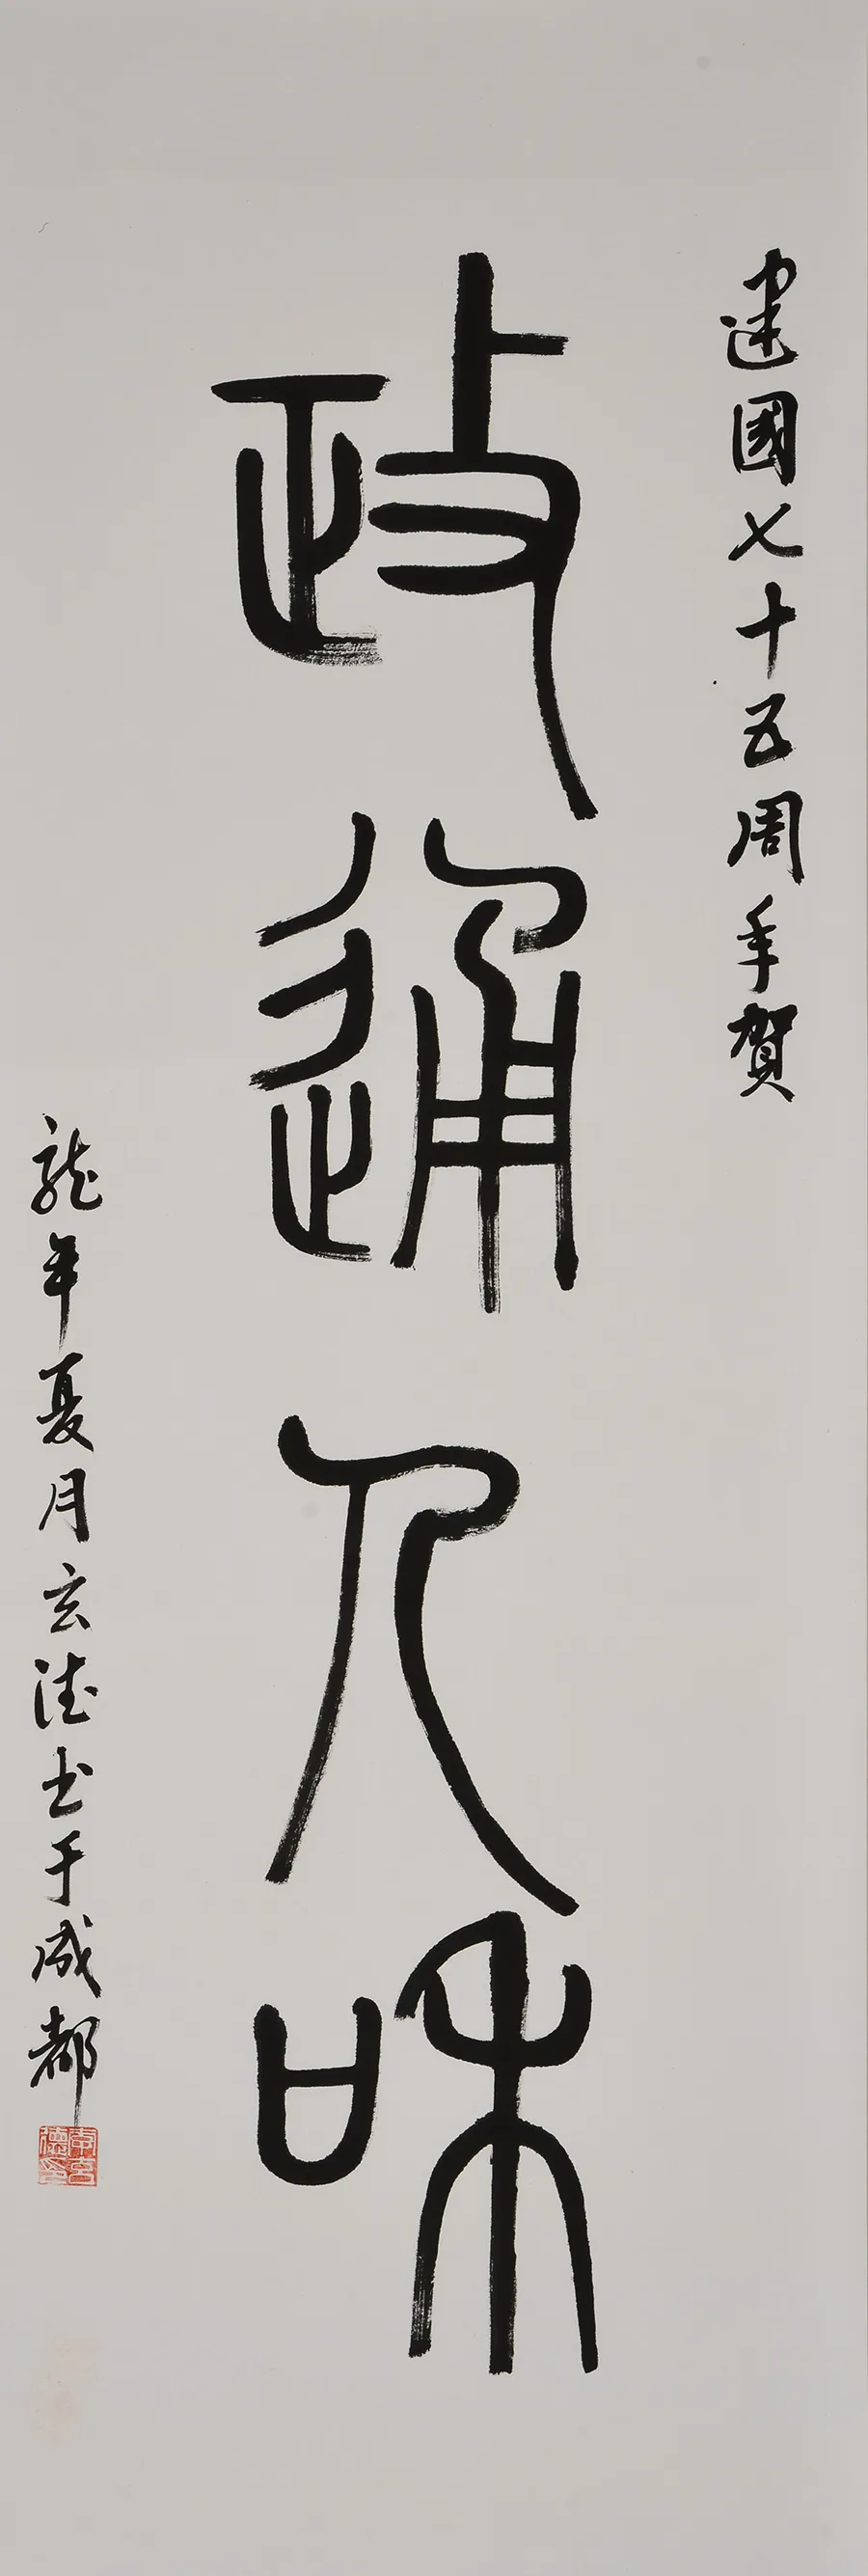 建國七十五周年賀
政通人和
龍年夏月玄德书于成都